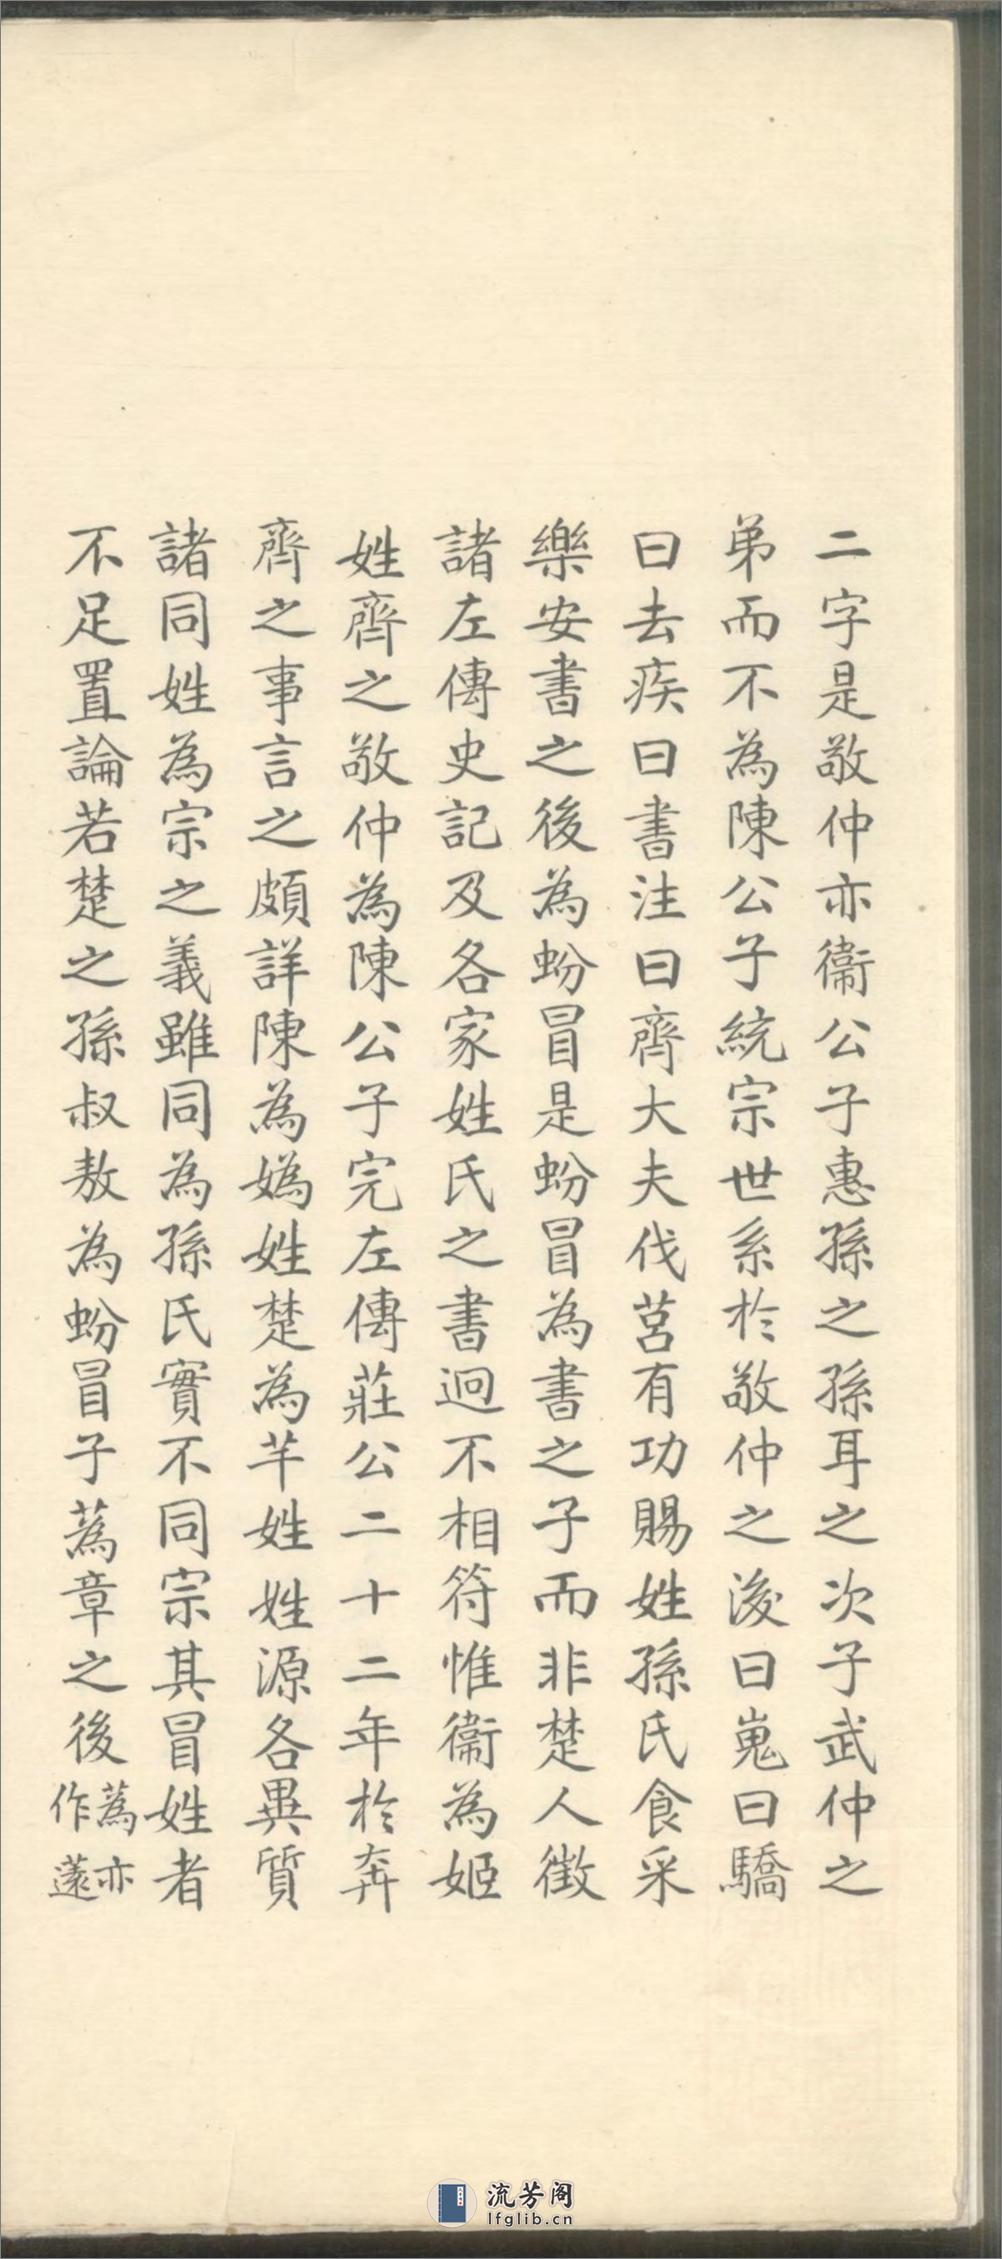 二字是敬仲亦衞公子惠孫之孫耳之次子武仲之
弟而不為陳公子統宗世系於敬仲之後曰嵬曰驕
曰去疾曰書注曰齊大夫伐莒有功賜姓孫氏食采
樂安書之後為蚡冒是蚡冒為書之子而非楚人徵
諸左傳史記及各家姓氏之書迥不相符惟衞為姬
姓齊之敬仲為陳公子完左傳莊公二十二年於奔
齊之事言之頗詳陳為媯姓楚為芊姓姓源各異質
諸同姓為宗之義雖同為孫氏實不同宗其冒姓者
不足置論若楚之孫叔敖為蚡冒子蒍章之後蒍亦
作薳
流芳阁
lfglib.cn